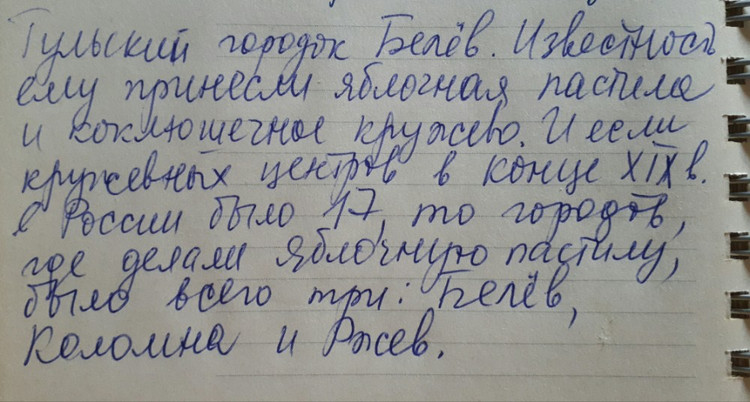 Тульский городок Белёв. Известность
ему принесли яблочная пастила
и коклюшечное кружево. И если
кружевных центров в конце XIX в.
в России было 17, то городов,
где делали яблочную пастилу,
было всего три: Белёв,
Коломна и Ржев.